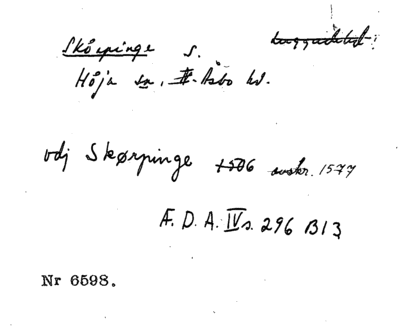 Skörpinge s.
Höja sn, N. Åsbo hd.
vdj Skørpinge 1506 avskr. 1577
Æ. D. A. IV s. 296 B13
Nr 6598.